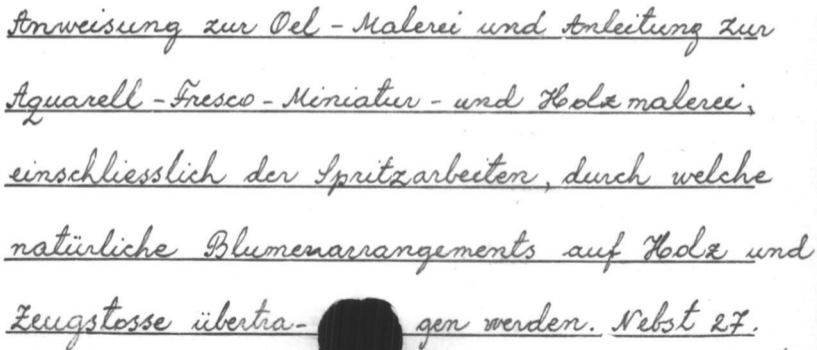 Anweisung zur Oel-Malerei und Anleitung zur
Aquarell-Fresco-Miniatur- und Holzmalerei,
einschliesslich der Spritzarbeiten, durch welche
natürliche Blumenarrangements auf Holz und
Zeugstosse übertra- gen werden. Nebst 27.